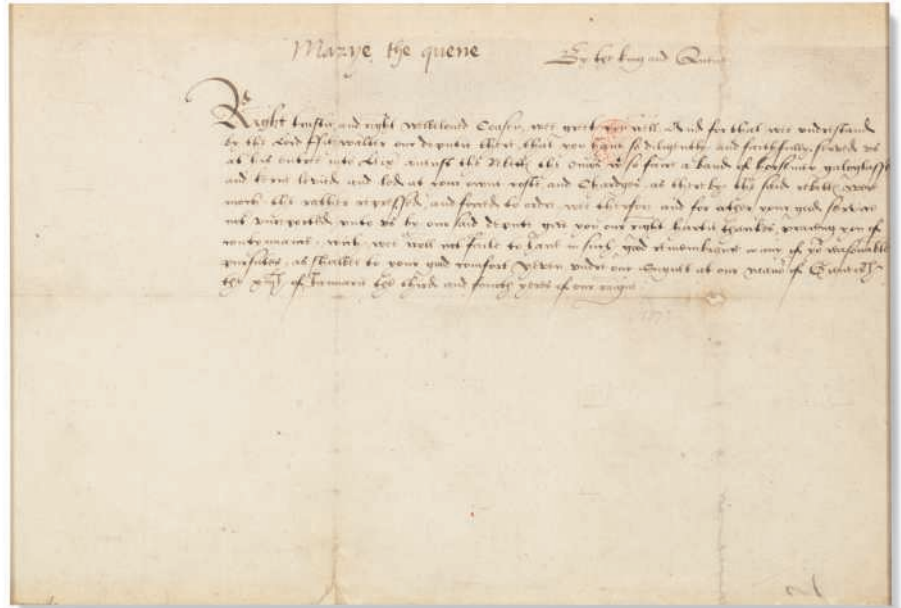 Marye the quene
By the king and Quene
Right trustie and right welbeloved Cousin, wee grete you well. And for that wee understand
by the Lord Fitz walter our deputie there, that you have so diligently and faithfully served us
at his entrie into Leix against the Rebells the Omores so faire a band of horsmen galoglasse
and kerne levied and led at your owne costs and Chardges, as therby the said rebells were
moch the rather repressed, and forced to order, wee therfore and for other your good service
us reported unto us by our said deputie geve you our right hartie thankes, praieng you of
contynuance, wich wee woll not faile to have in such good remembraunce in any of your reasonable
pursutes, as shalbe to your good comfort yeven under our Signet at our of Grenewich
the of Januarie the third and fourth yeres of our raigne